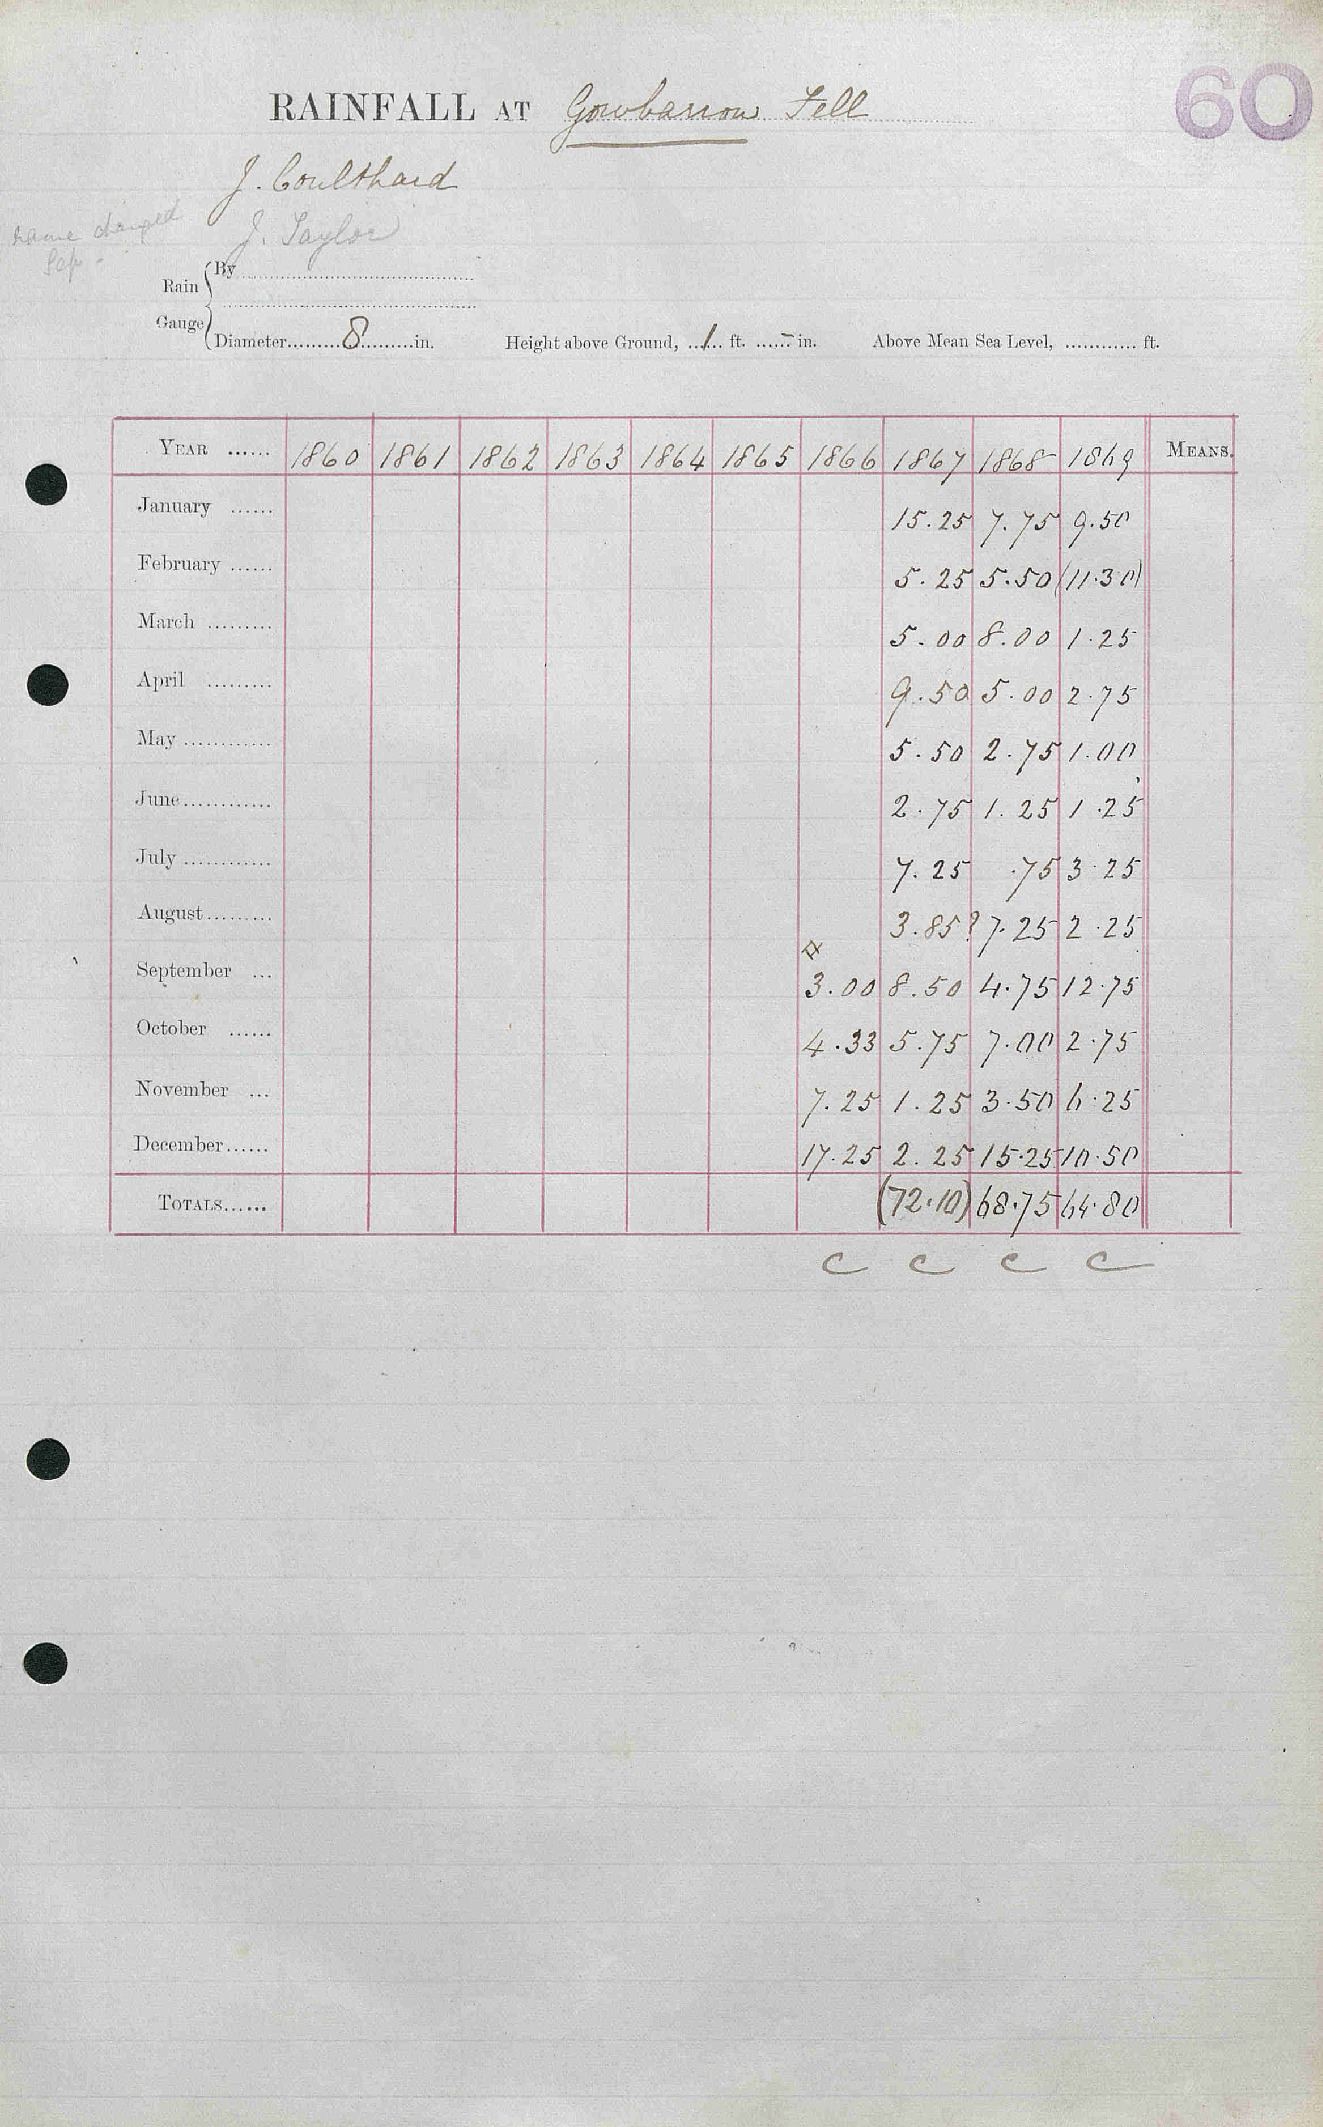 60
RAINFALL AT Gowbarrow Fell
J. Coulthard
J. Taylor
name changed
Sep -
Rain Gauge
By
Diameter.........8.........in. Height above Ground, ...1... ft. ......-in. Above Mean Sea Level, ............ ft.
YEAR ...... 1860 1861 1862 1863 1864 1865 1866 1867 1868 1869 MEANS.
January ...... 15.25 7.75 9.50
February ...... 5.25 5.50 (11.30)
March ......... 5.00 8.00 1.25
April ......... 9.50 5.00 2.75
May ............ 5.50 2.75 1.00
June............ 2.75 1.25 1.25
July ............ 7.25 .75 3.25
August......... 3.85? 7.25 2.25
September ... 3.00 8.50 4.75 12.75
October ...... 4.33 5.75 7.00 2.75
November ... 7.25 1.25 3.50 6.25
December...... 17.25 2.25 15.25 10.50
TOTALS...... (72.10) 68.75 64.80
C C C C